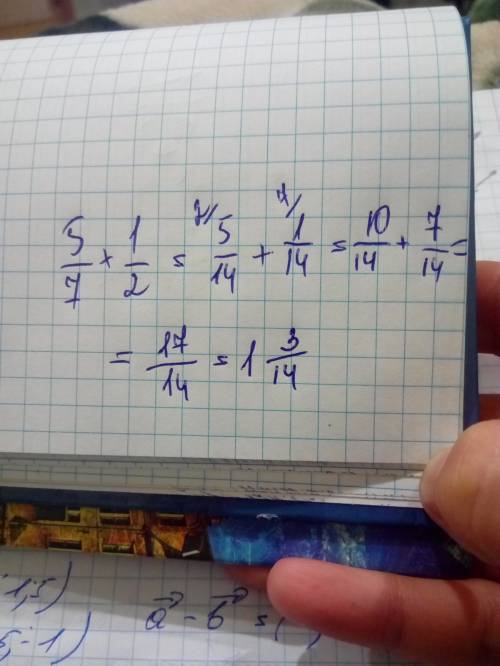 5/7 + 1/2 = 2/ 5/14 + 7/ 1/14 = 10/14 + 7/14 =
= 17/14 = 1 3/14
1,5)
a⃗ - b⃗ = (
; -1)